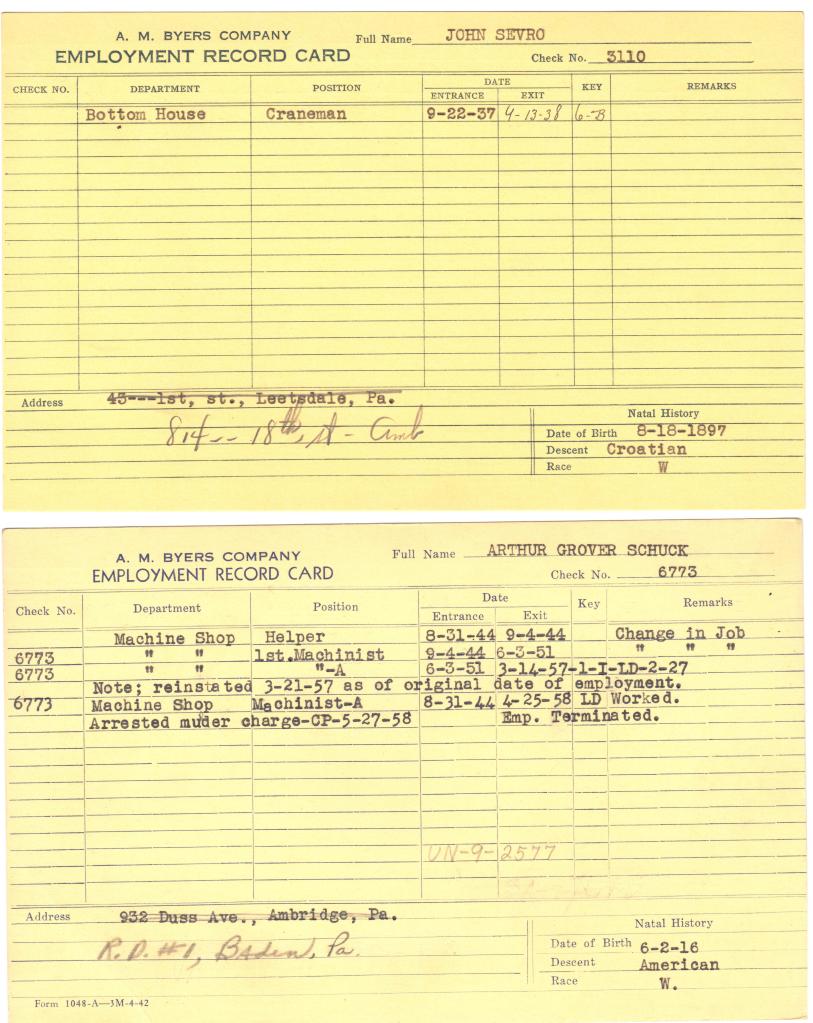 A. M. BYERS COMPANY
Full Name JOHN SEVRO
EMPLOYMENT RECORD CARD
Check No. 3110
CHECK NO. DEPARTMENT POSITION DATE ENTRANCE EXIT KEY REMARKS
Bottom House Craneman 9-22-37 4-13-38 6-B
Address 45---1st, st., Leetsdale, Pa.
814-- 18th, st - Amb
Natal History
Date of Birth 8-18-1897
Descent Croatian
Race W
A. M. BYERS COMPANY
Full Name ARTHUR GROVER SCHUCK
EMPLOYMENT RECORD CARD
Check No. 6773
Check No. Department Position Date Entrance Exit Key Remarks
Machine Shop Helper 8-31-44 9-4-44 Change in Job
6773 " " 1st.Machinist 9-4-44 6-3-51 " " "
6773 " " "-A 6-3-51 3-14-57-1-I-LD-2-27
Note; reinstated 3-21-57 as of original date of employment.
6773 Machine Shop Machinist-A 8-31-44 4-25-58 LD Worked.
Arrested muder charge-CP-5-27-58 Emp. Terminated.
UN-9-2577
Address 932 Duss Ave., Ambridge, Pa.
R.D.#1, Baden, Pa.
Natal History
Date of Birth 6-2-16
Descent American
Race W.
Form 1048-A—3M-4-42